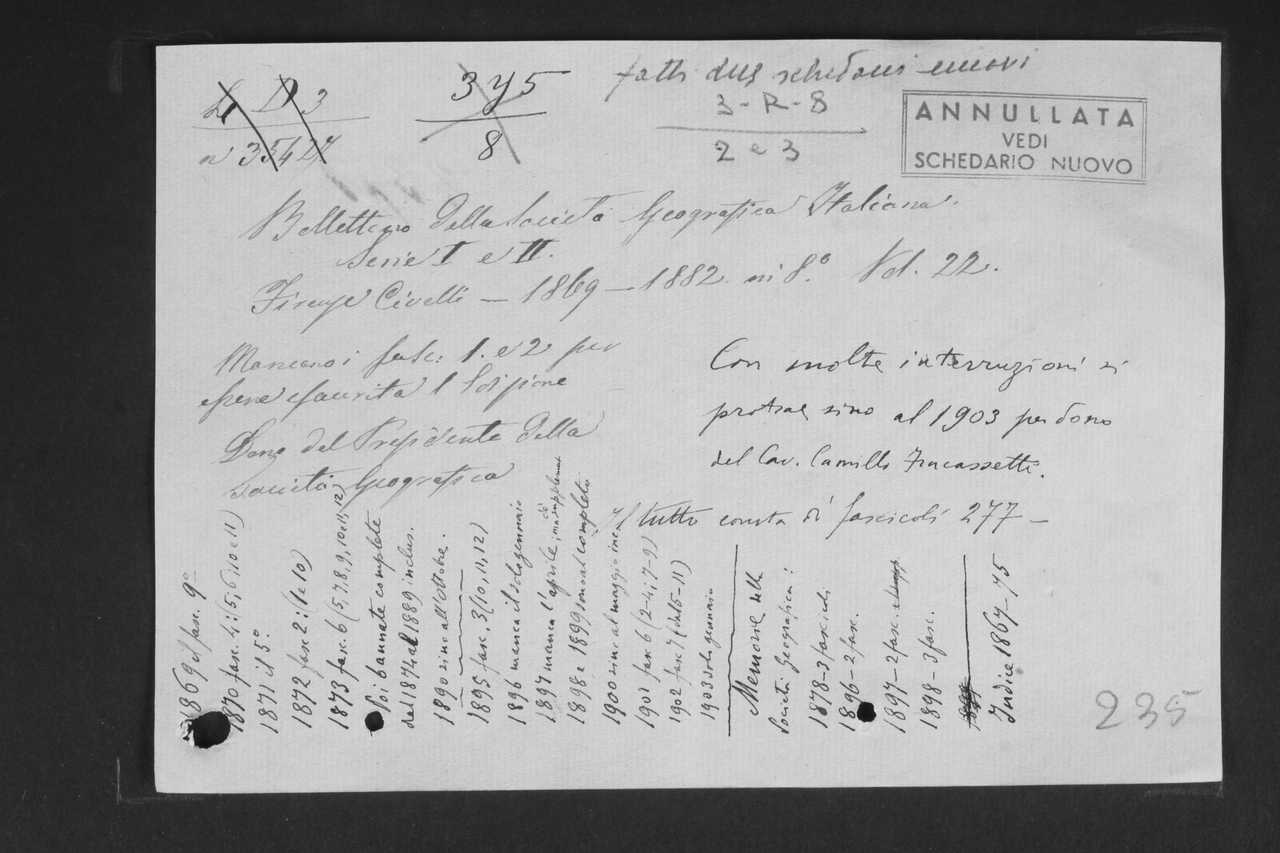 D 3
n° 35427
3 Y 5
8
fatti due schedari nuovi
V-R-8
2 e 3
ANNULLATA
VEDI
SCHEDARIO NUOVO
Bollettino della Società Geografica Italiana.
Serie I e II.
Firenze Civelli — 1869 — 1882 in 8.° Vol. 22.
Mancano i fasc: 1. e 2 per
esserne esaurita l'Edizione
Dono del Presidente della
Società Geografica
Con molte interruzioni si
protrae sino al 1903 per dono
del Cav. Camillo Fracassetti.
Il tutto consta di fascicoli 277 —
1869 il fasc. 9°
1870 fasc. 4: (5, 6, 10 e 11)
1871 il 5°
1872 fasc 2: (1 e 10)
1873 fasc. 6 (5, 7, 8, 9, 10 e 11, 12)
Poi bannate complete
dal 1874 al 1889 inclus.
1890 sino all'Ottobre.
1895 fasc. 3 (10, 11, 12)
1896 manca il solo gennaio
1897 manca l'aprile, ma c'è supplemento
1898 e 1899 sono al completo
1900 sino al maggio incl.
1901 fasc 6 (2-4; 7-9)
1902 fasc 7 (dal 5-11)
1903 solo gennaio
Memorie della
Società Geografica:
1878 - 3 fascicoli
1896 - 2 fasc.
1897 - 2 fasc.
1898 - 3 fasc.
Indice 1867-75
235